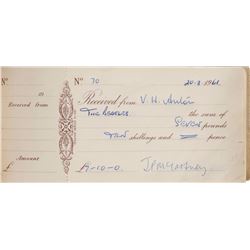 No
19
Received from
Amount
£
No 70 20-8-1961
Received from V. H. Anton
The Beatles the sum of
SEVEN pounds
TEN shillings and — pence
£7-10-0. J P McCartney